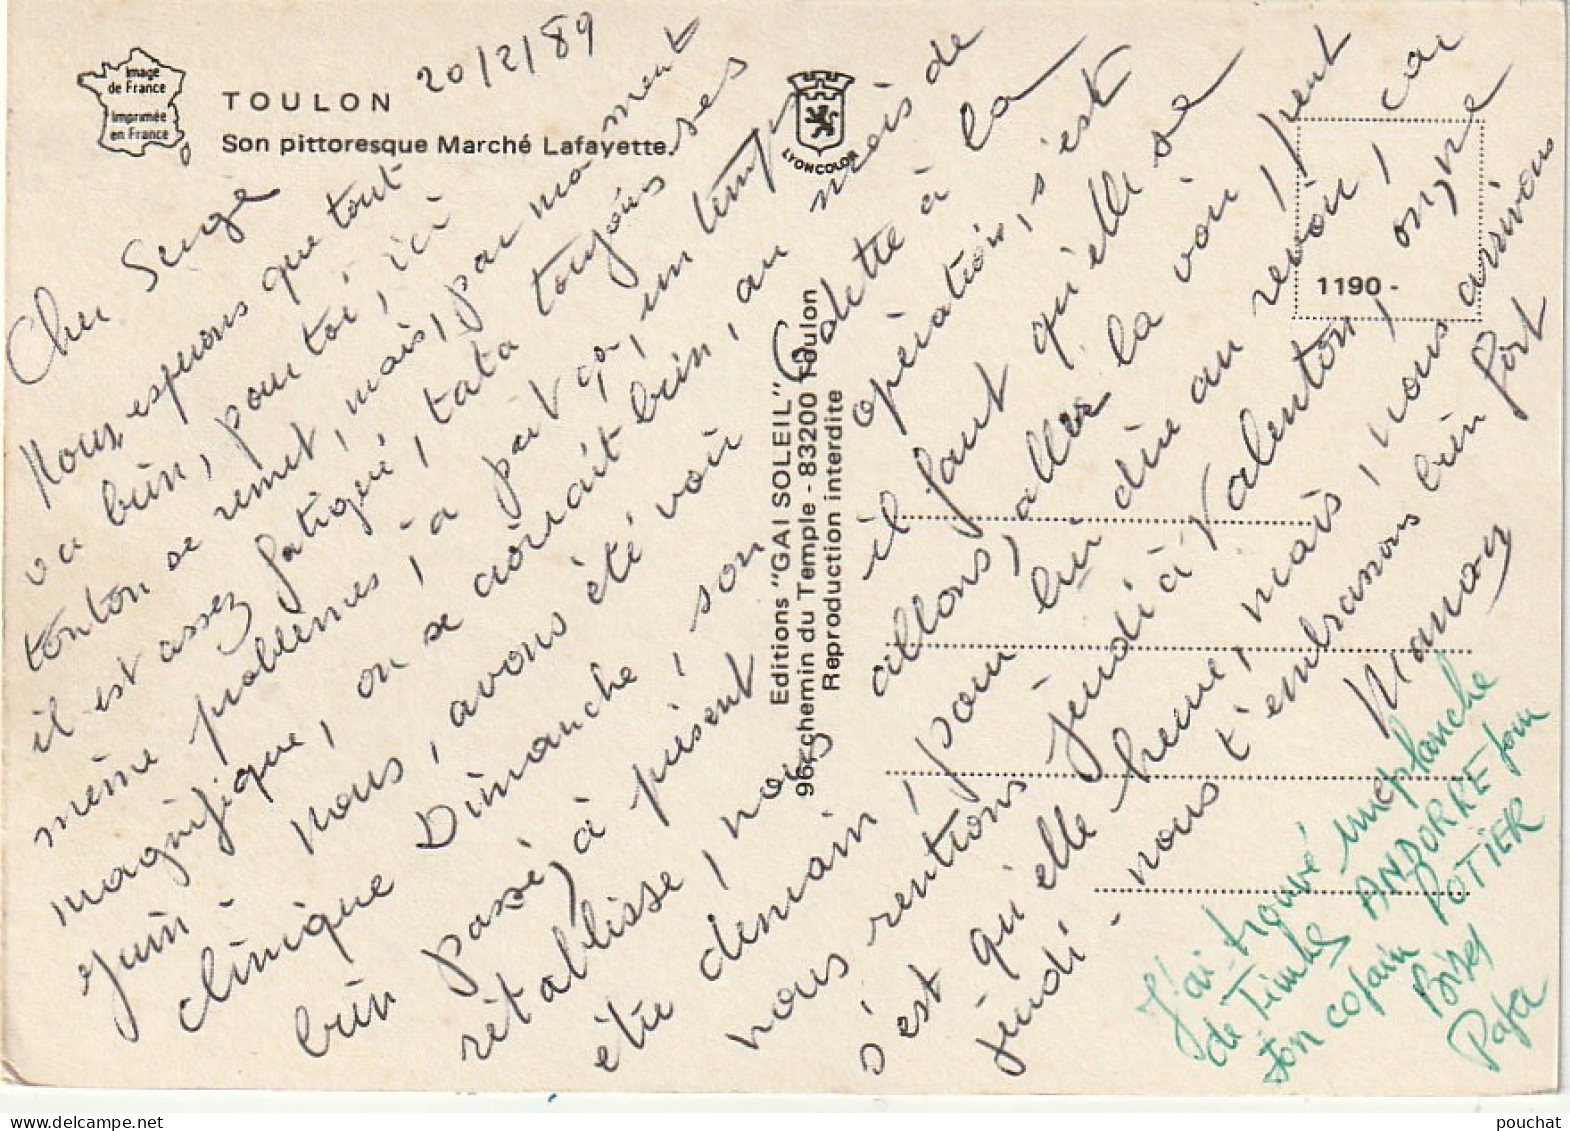 Image
de France
Imprimée
en France
TOULON
20/2/89
Son pittoresque Marché Lafayette.
LYONCOLOR
1190 -
Editions "GAI SOLEIL"
96, chemin du Temple - 83200 Toulon
Reproduction interdite
Cher Serge
Nous espérons que tout
va bien, pour toi, ici
tonton se remet, mais, par moment
il est assez fatigué, tata toujours ses
même problèmes, à part ça, un temps
magnifique, on se croirait bien, au mois de
Juin - Nous, avons été voir Odette à la
clinique Dimanche, son opération, s'est
bien passé, à présent il faut qu'elle se
rétablisse, nous allons, aller la voir, peut
être demain, pour lui dire au revoir, car
nous rentrons jeudi à Valenton, on ne
s'est qu'elle heure, mais, nous arrivons
jeudi - nous t'embrassons bien fort
Maman
J'ai trouvé une planche
de Timbres ANDORRE pour
ton copain POTIER
Bises
Papa
pouchat